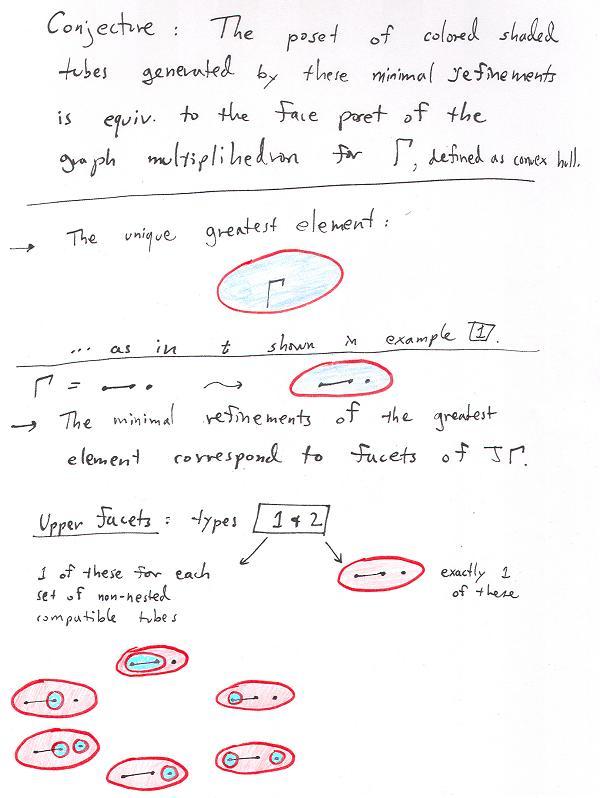 Conjecture : The poset of colored shaded
tubes generated by these minimal refinements
is equiv. to the face poset of the
graph multiplihedron for Γ, defined as convex hull.
→ The unique greatest element :
Γ
... as in t shown in example 1.
Γ =
→ The minimal refinements of the greatest
element correspond to facets of JΓ.
Upper facets : types 1 & 2
1 of these for each
set of non-nested
compatible tubes
exactly 1
of these